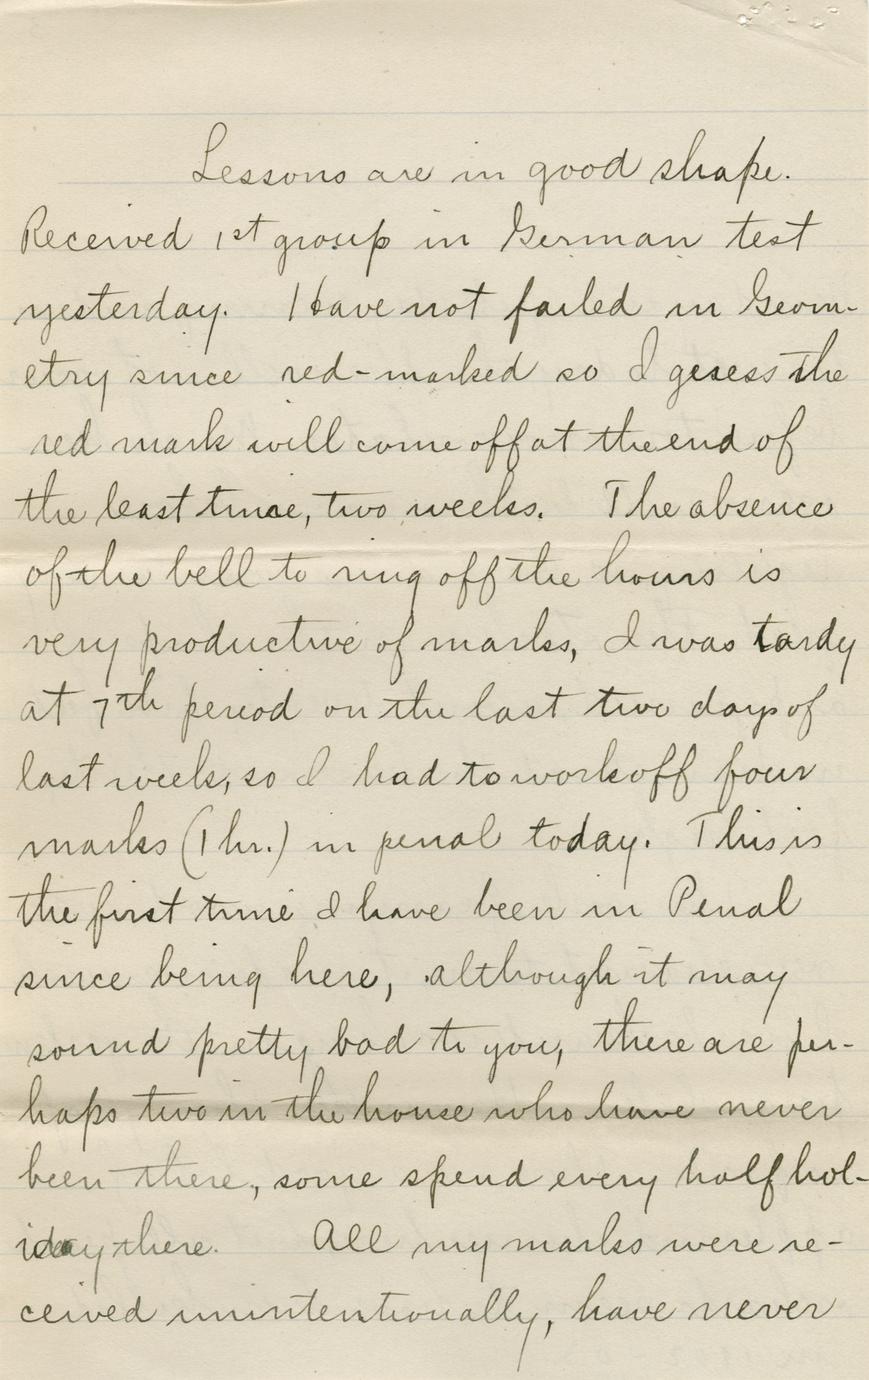 Lessons are in good shape.
Received 1st group in German test
yesterday. Have not failed in Geom-
etry since red-marked so I guess the
red mark will come off at the end of
the least time, two weeks. The absence
of the bell to ring off the hours is
very productive of marks, I was tardy
at 7th period on the last two days of
last week, so I had to work off four
marks (1 hr.) in penal today. This is
the first time I have been in Penal
since being here, although it may
sound pretty bad to you, there are per-
haps two in the house who have never
been there, some spend every half hol-
iday there. All my marks were re-
ceived unintentionally, have never